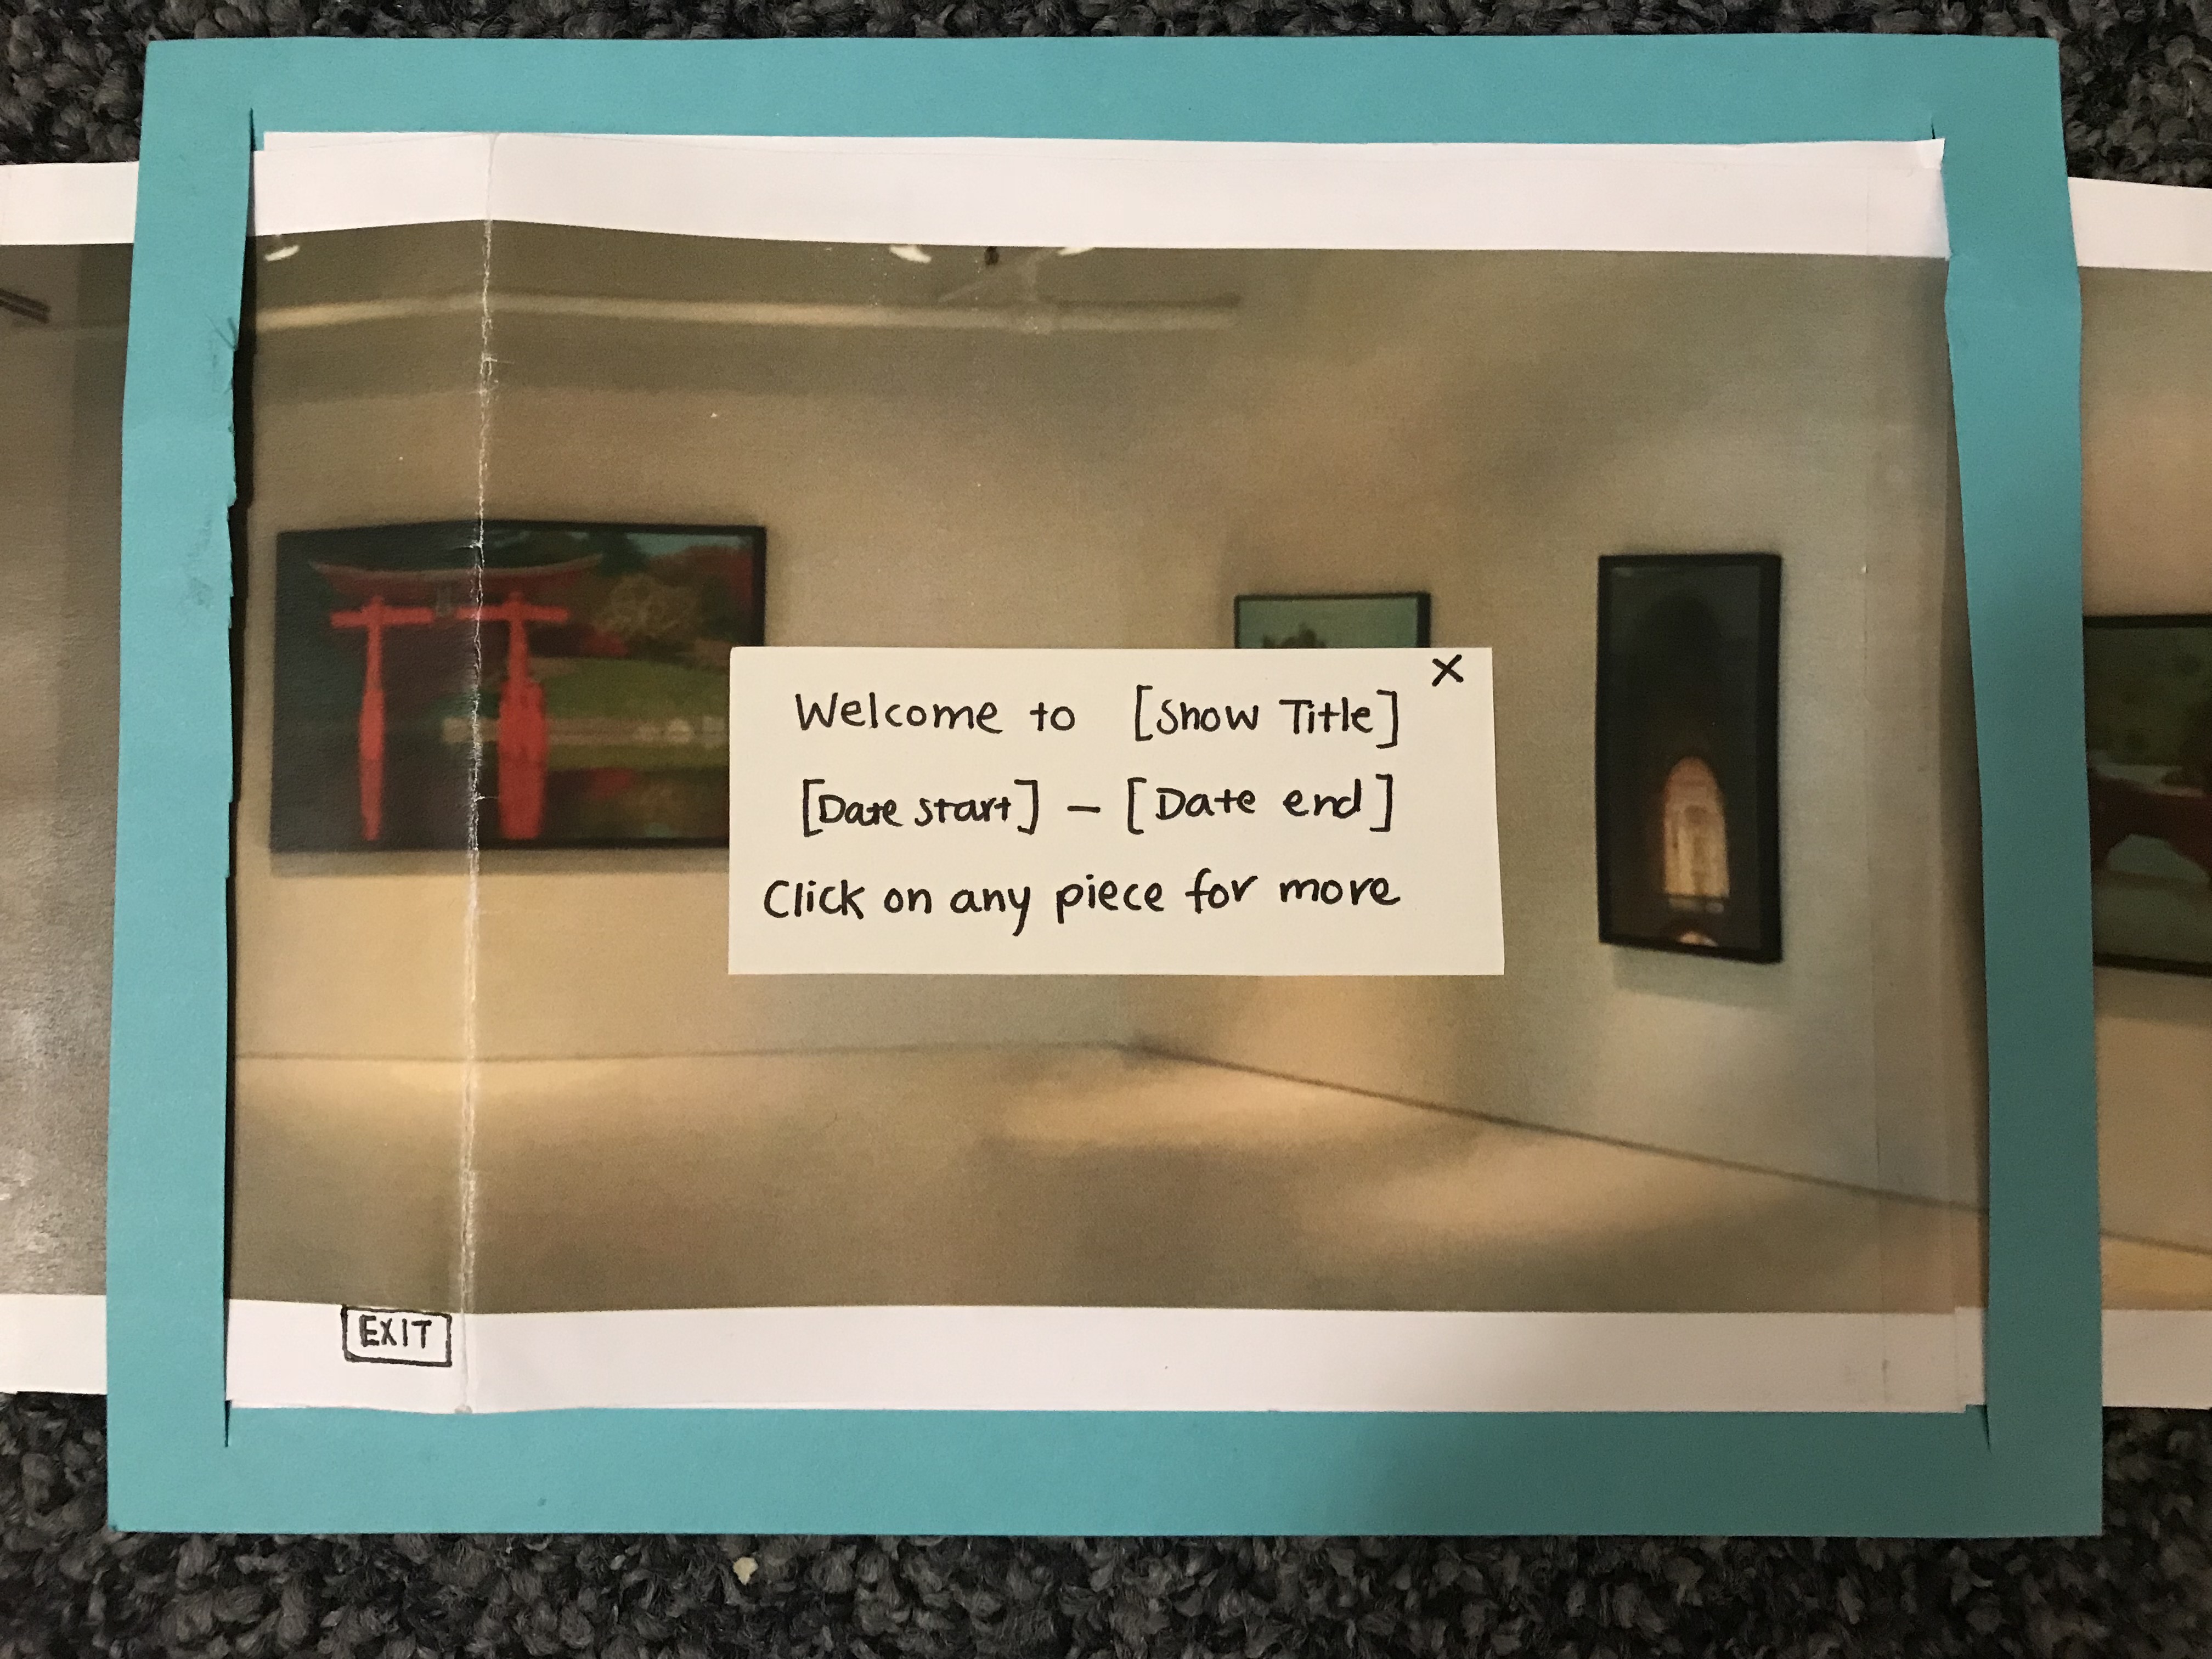 X
Welcome to [Show Title]
[Date start] – [Date end]
Click on any piece for more
EXIT